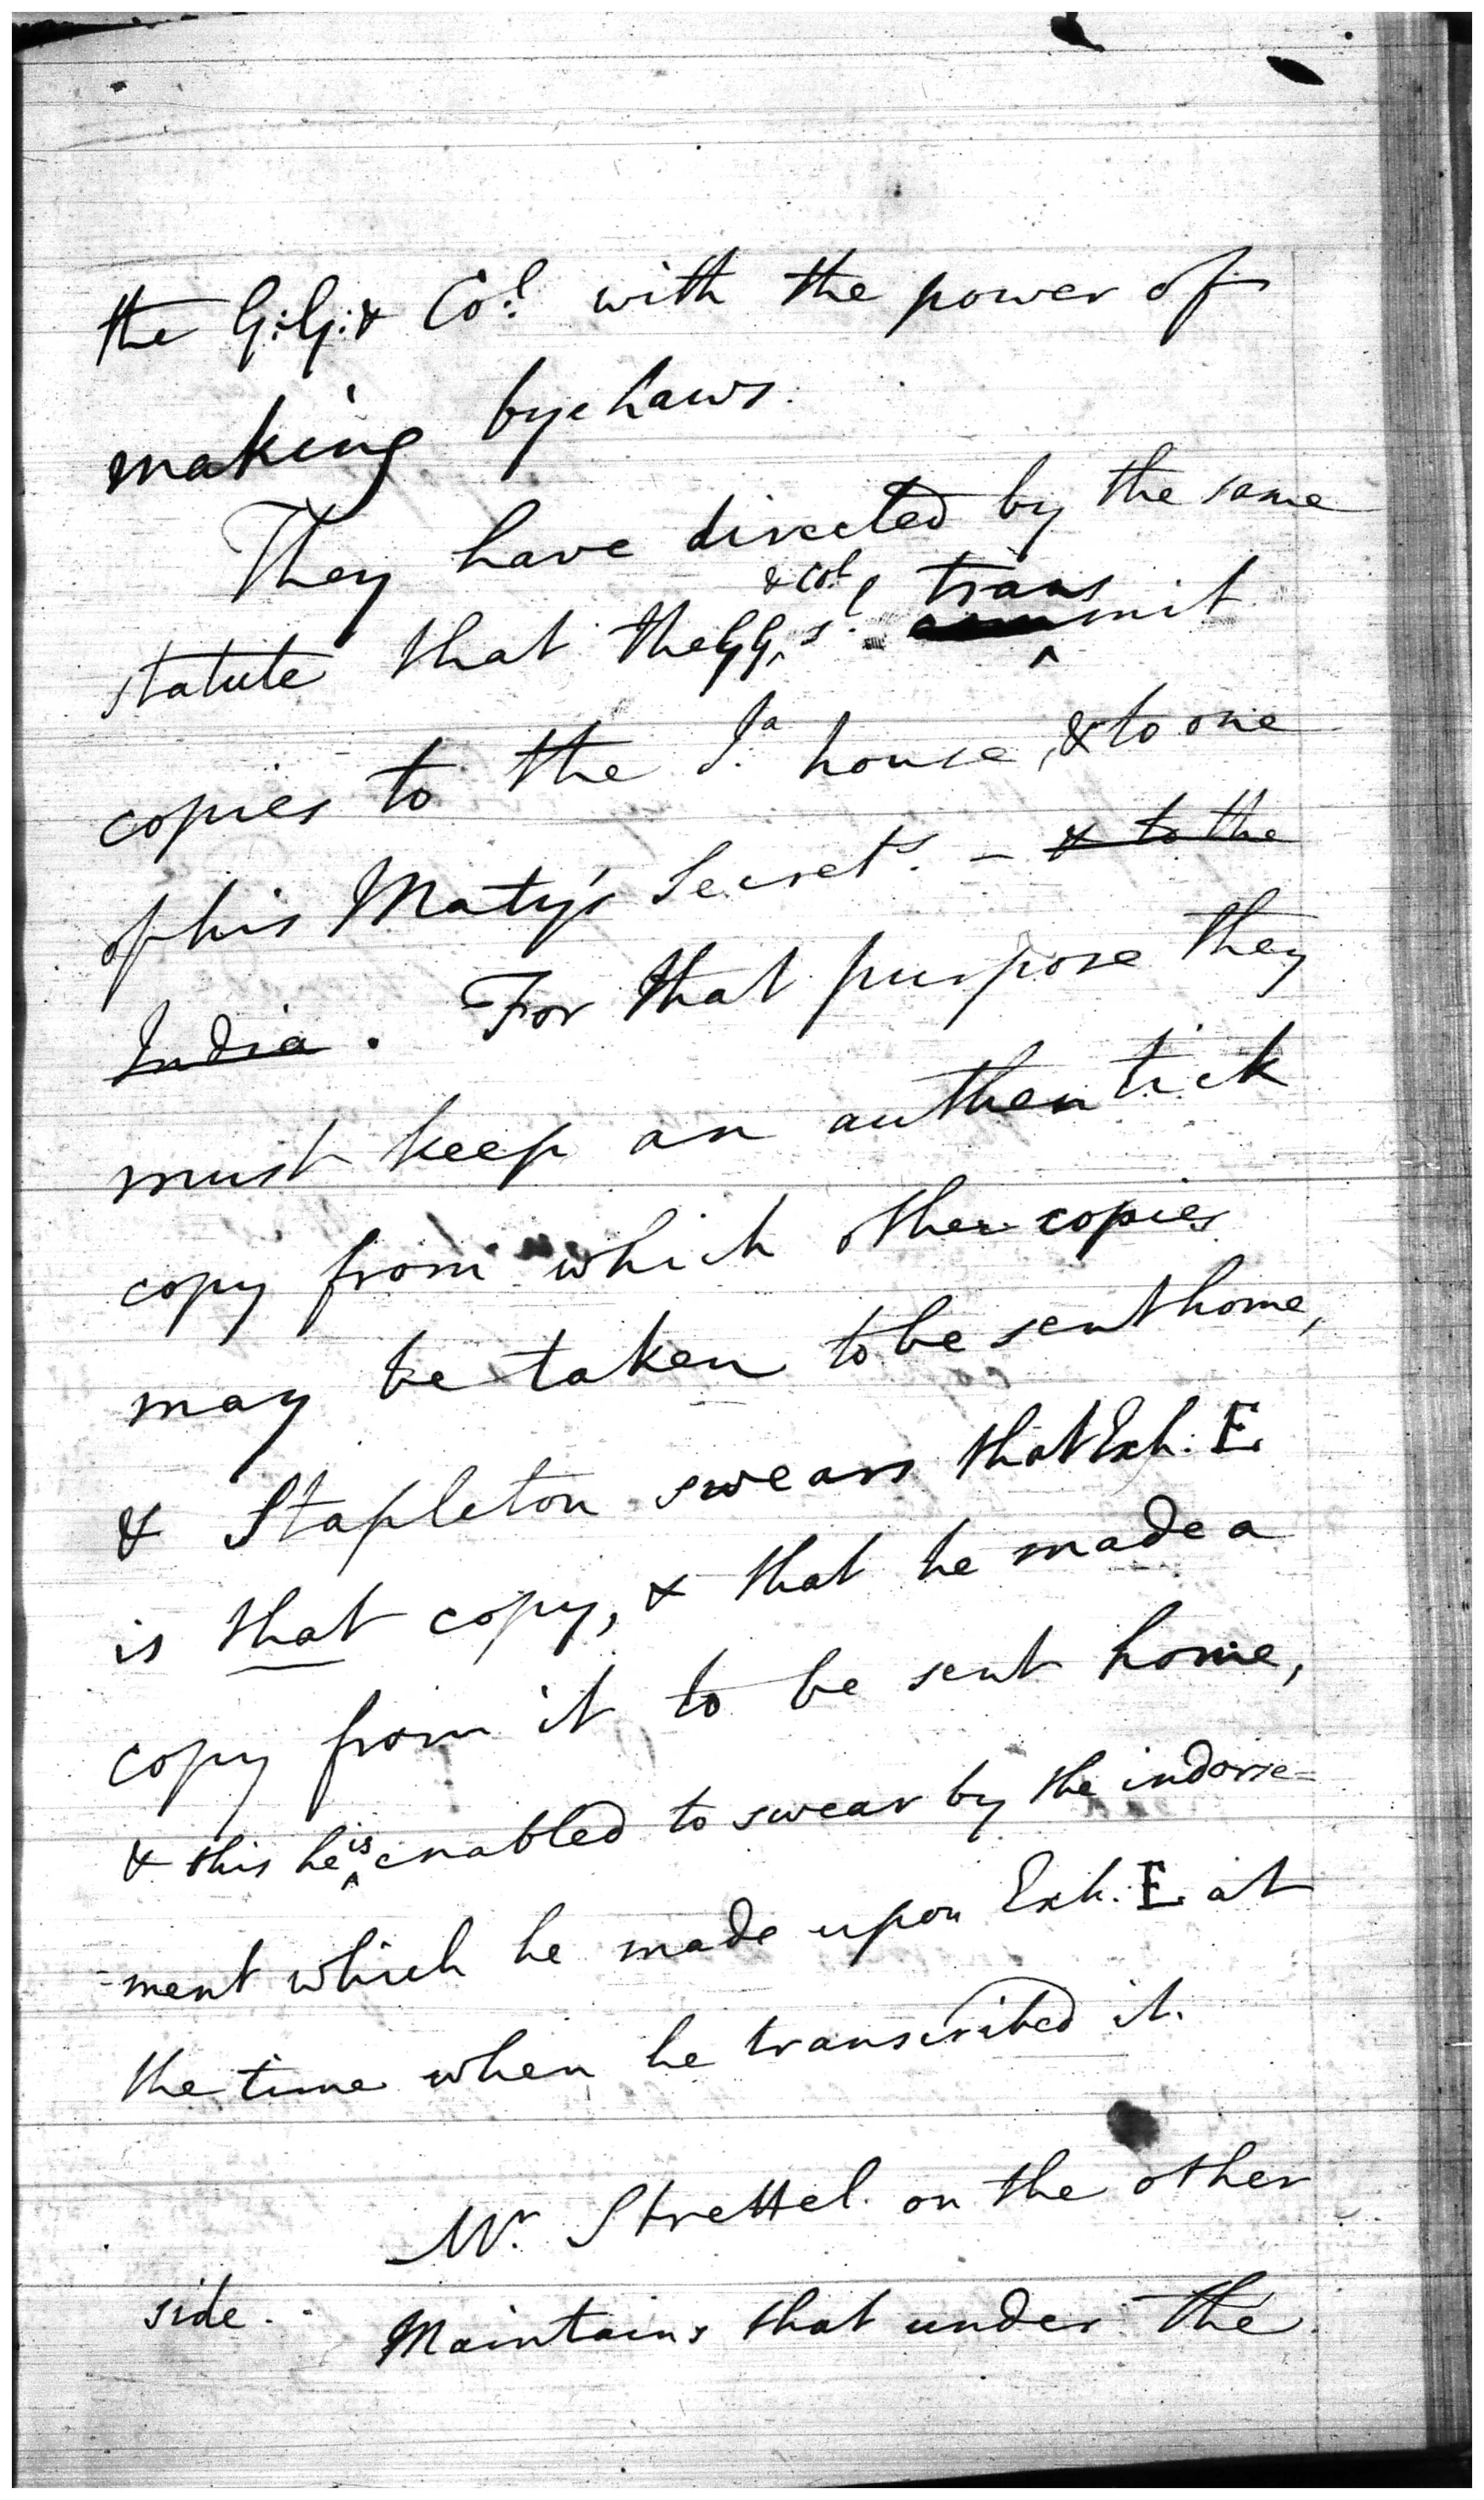 the G:G: & Co.l with the power of
making bye Laws.
They have directed by the same
statute that the GG & Col sl. transmit
copies to the I.a house, & to one
of his Maty's Secrets. – & to the
India. For that purpose they
must keep an authentick
copy from which other copies
may be taken to be sent home,
& Stapleton swears that Exh. E
is that copy, & that he made a
copy from it to be sent home,
& this he is enabled to swear by the indorse=
-ment which he made upon Exh. E at
the time when he transcribed it.
Mr. Strettel. on the other
side. Maintains that under the